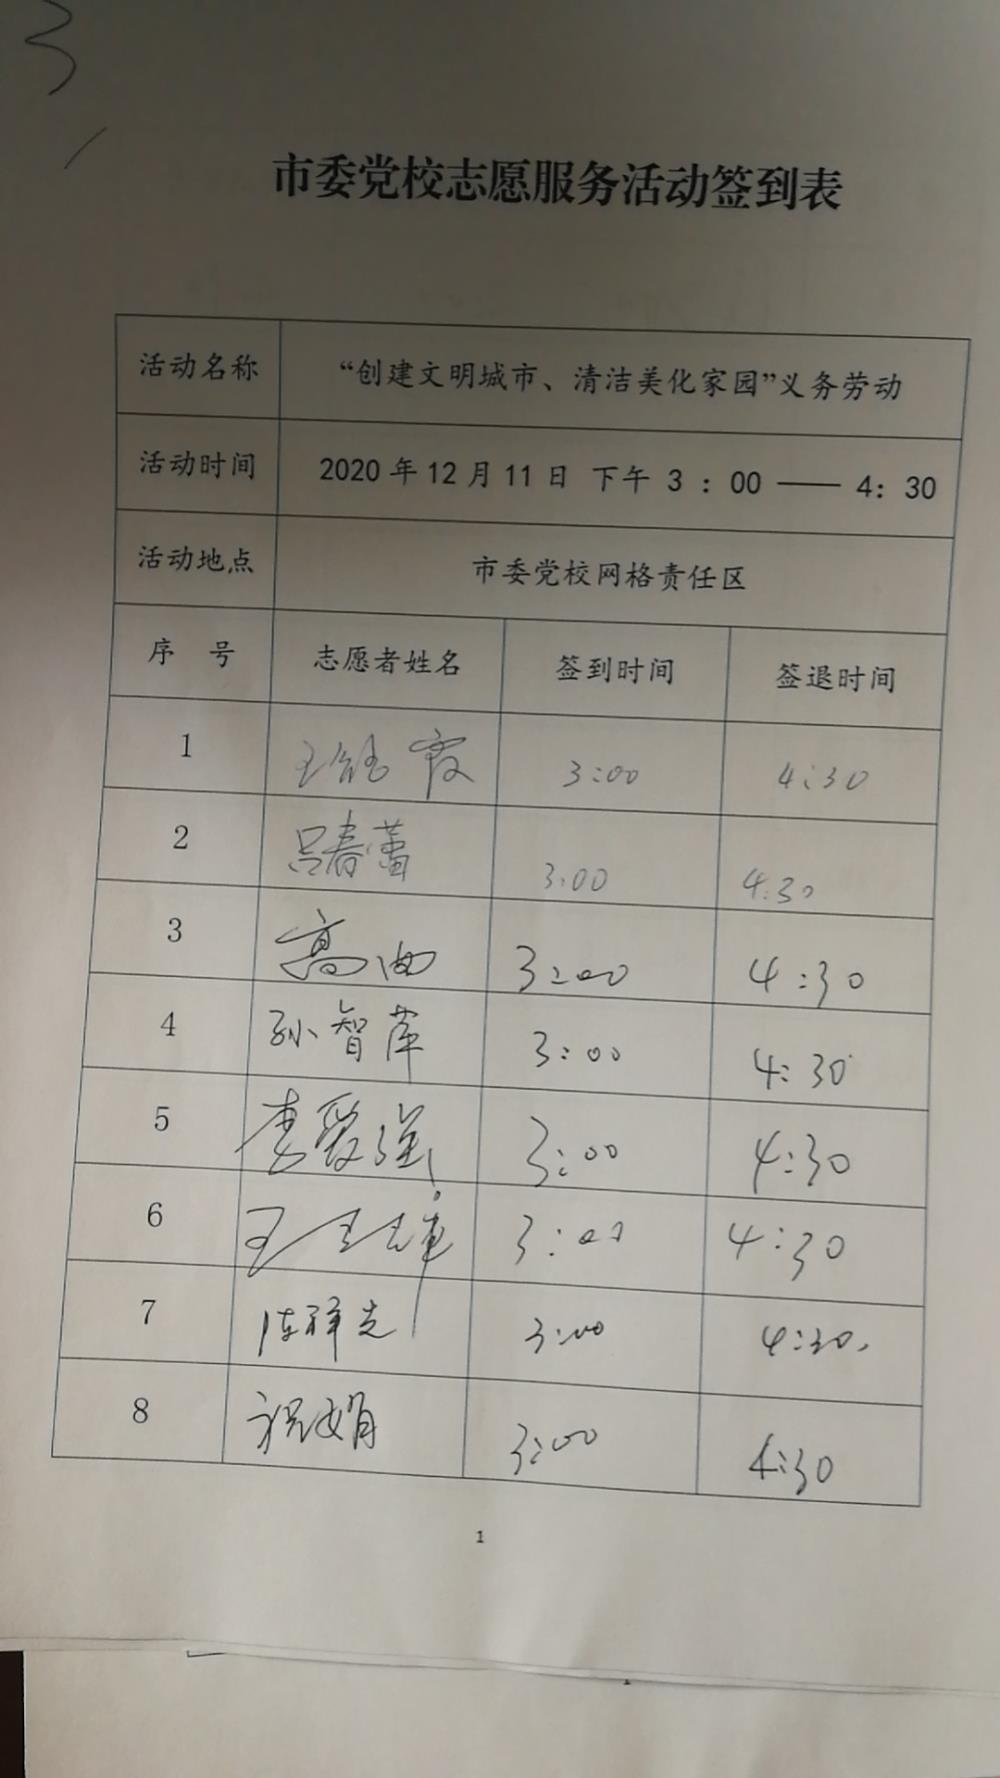 3
市委党校志愿服务活动签到表
活动名称 “创建文明城市、清洁美化家园”义务劳动
活动时间 2020年12月11日 下午 3 : 00 —— 4: 30
活动地点 市委党校网格责任区
序 号 志愿者姓名 签到时间 签退时间
1 3:00 4:30
2 吕春蕾 3:00 4:30
3 高曲 3:00 4:30
4 孙智萍 3:00 4:30
5 李爱强 3:00 4:30
6 3:00 4:30
7 陈祥光 3:00 4:30
8 祝娟 3:00 4:30
1